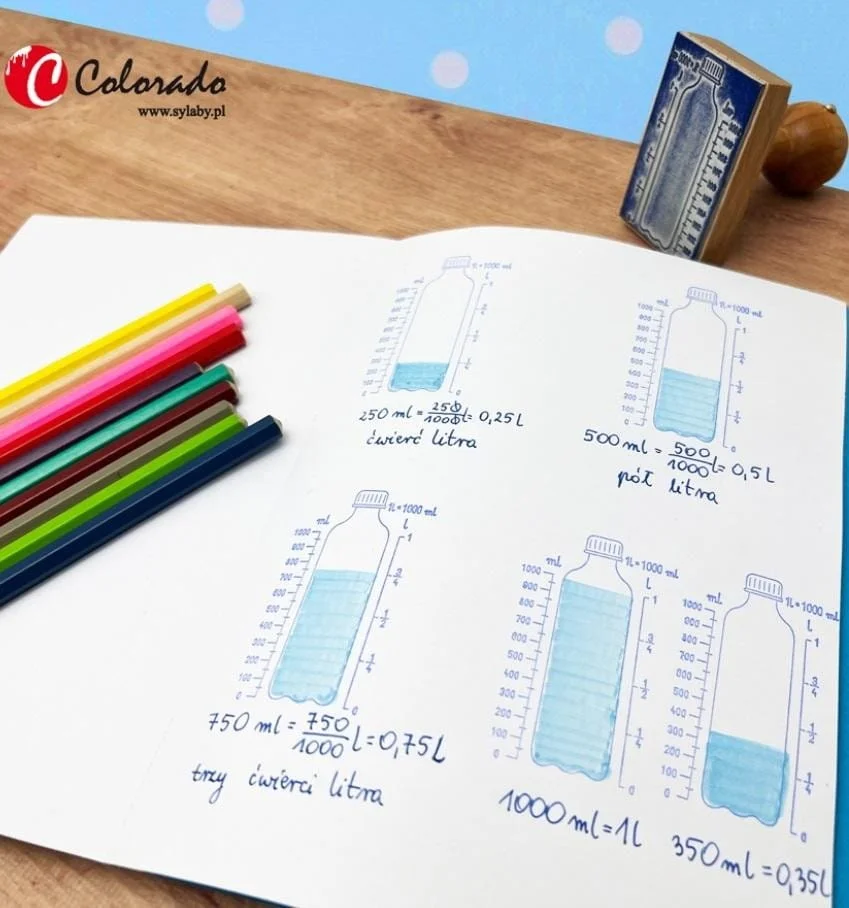 Colorado
www.sylaby.pl
ml
1l = 1000 ml
l
1000
900
800
700
600
500
400
300
200
100
0
1
3/4
1/2
1/4
0
250 ml = 250/1000 l = 0,25 L
ćwierć litra
ml
1L = 1000 ml
l
1000
900
800
700
600
500
400
300
200
100
0
1
3/4
1/2
1/4
0
500 ml = 500/1000 l = 0,5 L
pół litra
ml
1L = 1000 ml
l
1000
900
800
700
600
500
400
300
200
100
0
1
3/4
1/2
1/4
0
750 ml = 750/1000 l = 0,75 L
trzy ćwierci litra
ml
1L = 1000 ml
l
1000
900
800
700
600
500
400
300
200
100
0
1
3/4
1/2
1/4
0
1000 ml = 1l
ml
1L = 1000 ml
l
1000
900
800
700
600
500
400
300
200
100
0
1
3/4
1/2
1/4
0
350 ml = 0,35 L